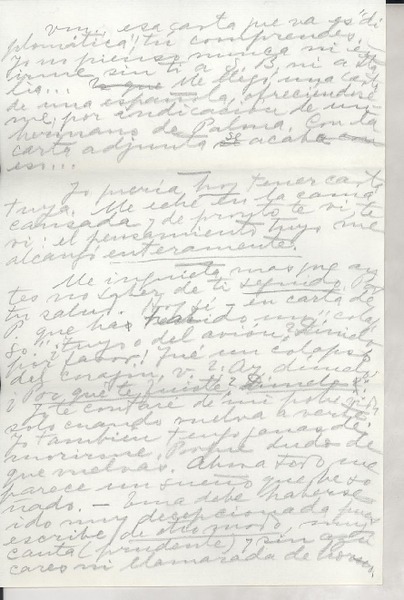 Vm., esa carta que va es "di
plomática", tú comprendes.
Yo no pienso nunca ni ir
irme sin ti a S. B. ni a Ita
lia... Me llegó una carta
de una española, ofreciéndose
me, por indicación de un
hermano de Palma. Con la
carta adjunta se acaba con
eso...
Yo quería hoy tener carta
tuya. Me eché en la cama
cansada y de pronto te vi, te
vi: el pensamiento tuyo me
alcanzó enteramente.
Me inquieta más que an
tes no saber de ti seguido, por
tu salud. Yo sé en carta de
P. que has tenido un "colap
so" tuyo o del avión? Dímelo
por favor! Fue un colapso
del corazón, v.? Ay, dímelo!
Por qué te fuiste? Dímelo
Y te contaré de mi pobre vida
solo cuando vuelva a verte.
Yo también tengo ganas de
morirme. Porque dudo de
que vuelvas. Ahora todo me
parece un sueño que he so
ñado. — debe haberse
ido muy decepcionada pues
escribe de otro modo, muy
cauta (prudente) y sin azú
cares ni llamarada de